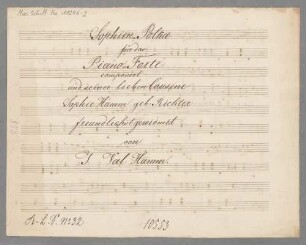 Mus. Schott. Ha. 11246-2
Sophien Polka
für das
Piano-Forte
componirt
und seiner lieben Cousine
Sophie Hamm geb. Richter
freundlichst gewidmet
von
J. Val. Hamm.
N. 32
10553